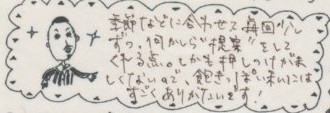 季節などに合わせて毎回少し
ずつ、何かしら"提案"をして
くれる点。しかも押しつけがま
しくないので、飽きっぽい私には
すごくありがたいです!